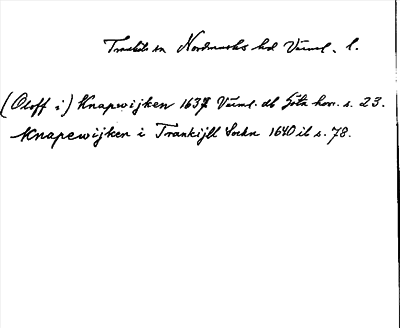 Trankils sn Nordmarks hd Värml. l.
(Oloff i) Knapwijken 1637 Värml. db Göta hovr. s. 23.
Knapewijken i Trankijll Sockn 1640 ib s. 78.